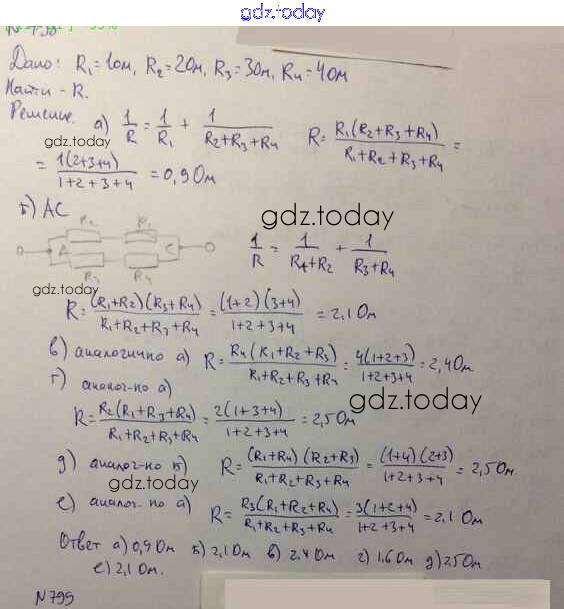 gdz.today
Дано: R₁=1Ом, R₂=2Ом, R₃=3Ом, R₄=4Ом
Найти - R.
Решение. а) 1/R = 1/R₁ + 1/(R₂+R₃+R₄) R = R₁(R₂+R₃+R₄)/(R₁+R₂+R₃+R₄) =
gdz.today
= 1(2+3+4)/(1+2+3+4) = 0,9 Ом
б) AC
R₂ R₁
A C
R₃ R₄
gdz.today
1/R = 1/(R₁+R₂) + 1/(R₃+R₄)
gdz.today
R = (R₁+R₂)(R₃+R₄)/(R₁+R₂+R₃+R₄) = (1+2)(3+4)/(1+2+3+4) = 2,1 Ом
в) аналогично а) R = R₄(R₁+R₂+R₃)/(R₁+R₂+R₃+R₄) = 4(1+2+3)/(1+2+3+4) = 2,4 Ом
г) аналог-но а)
gdz.today
R = R₂(R₁+R₃+R₄)/(R₁+R₂+R₃+R₄) = 2(1+3+4)/(1+2+3+4) = 2,5 Ом
д) аналог-но б) R = (R₁+R₄)(R₂+R₃)/(R₁+R₂+R₃+R₄) = (1+4)(2+3)/(1+2+3+4) = 2,5 Ом
gdz.today
е) аналог-но а) R = R₃(R₁+R₂+R₄)/(R₁+R₂+R₃+R₄) = 3(1+2+4)/(1+2+3+4) = 2,1 Ом
Ответ а) 0,9 Ом б) 2,1 Ом в) 2,4 Ом г) 1,6 Ом д) 2,5 Ом
е) 2,1 Ом.
N 799